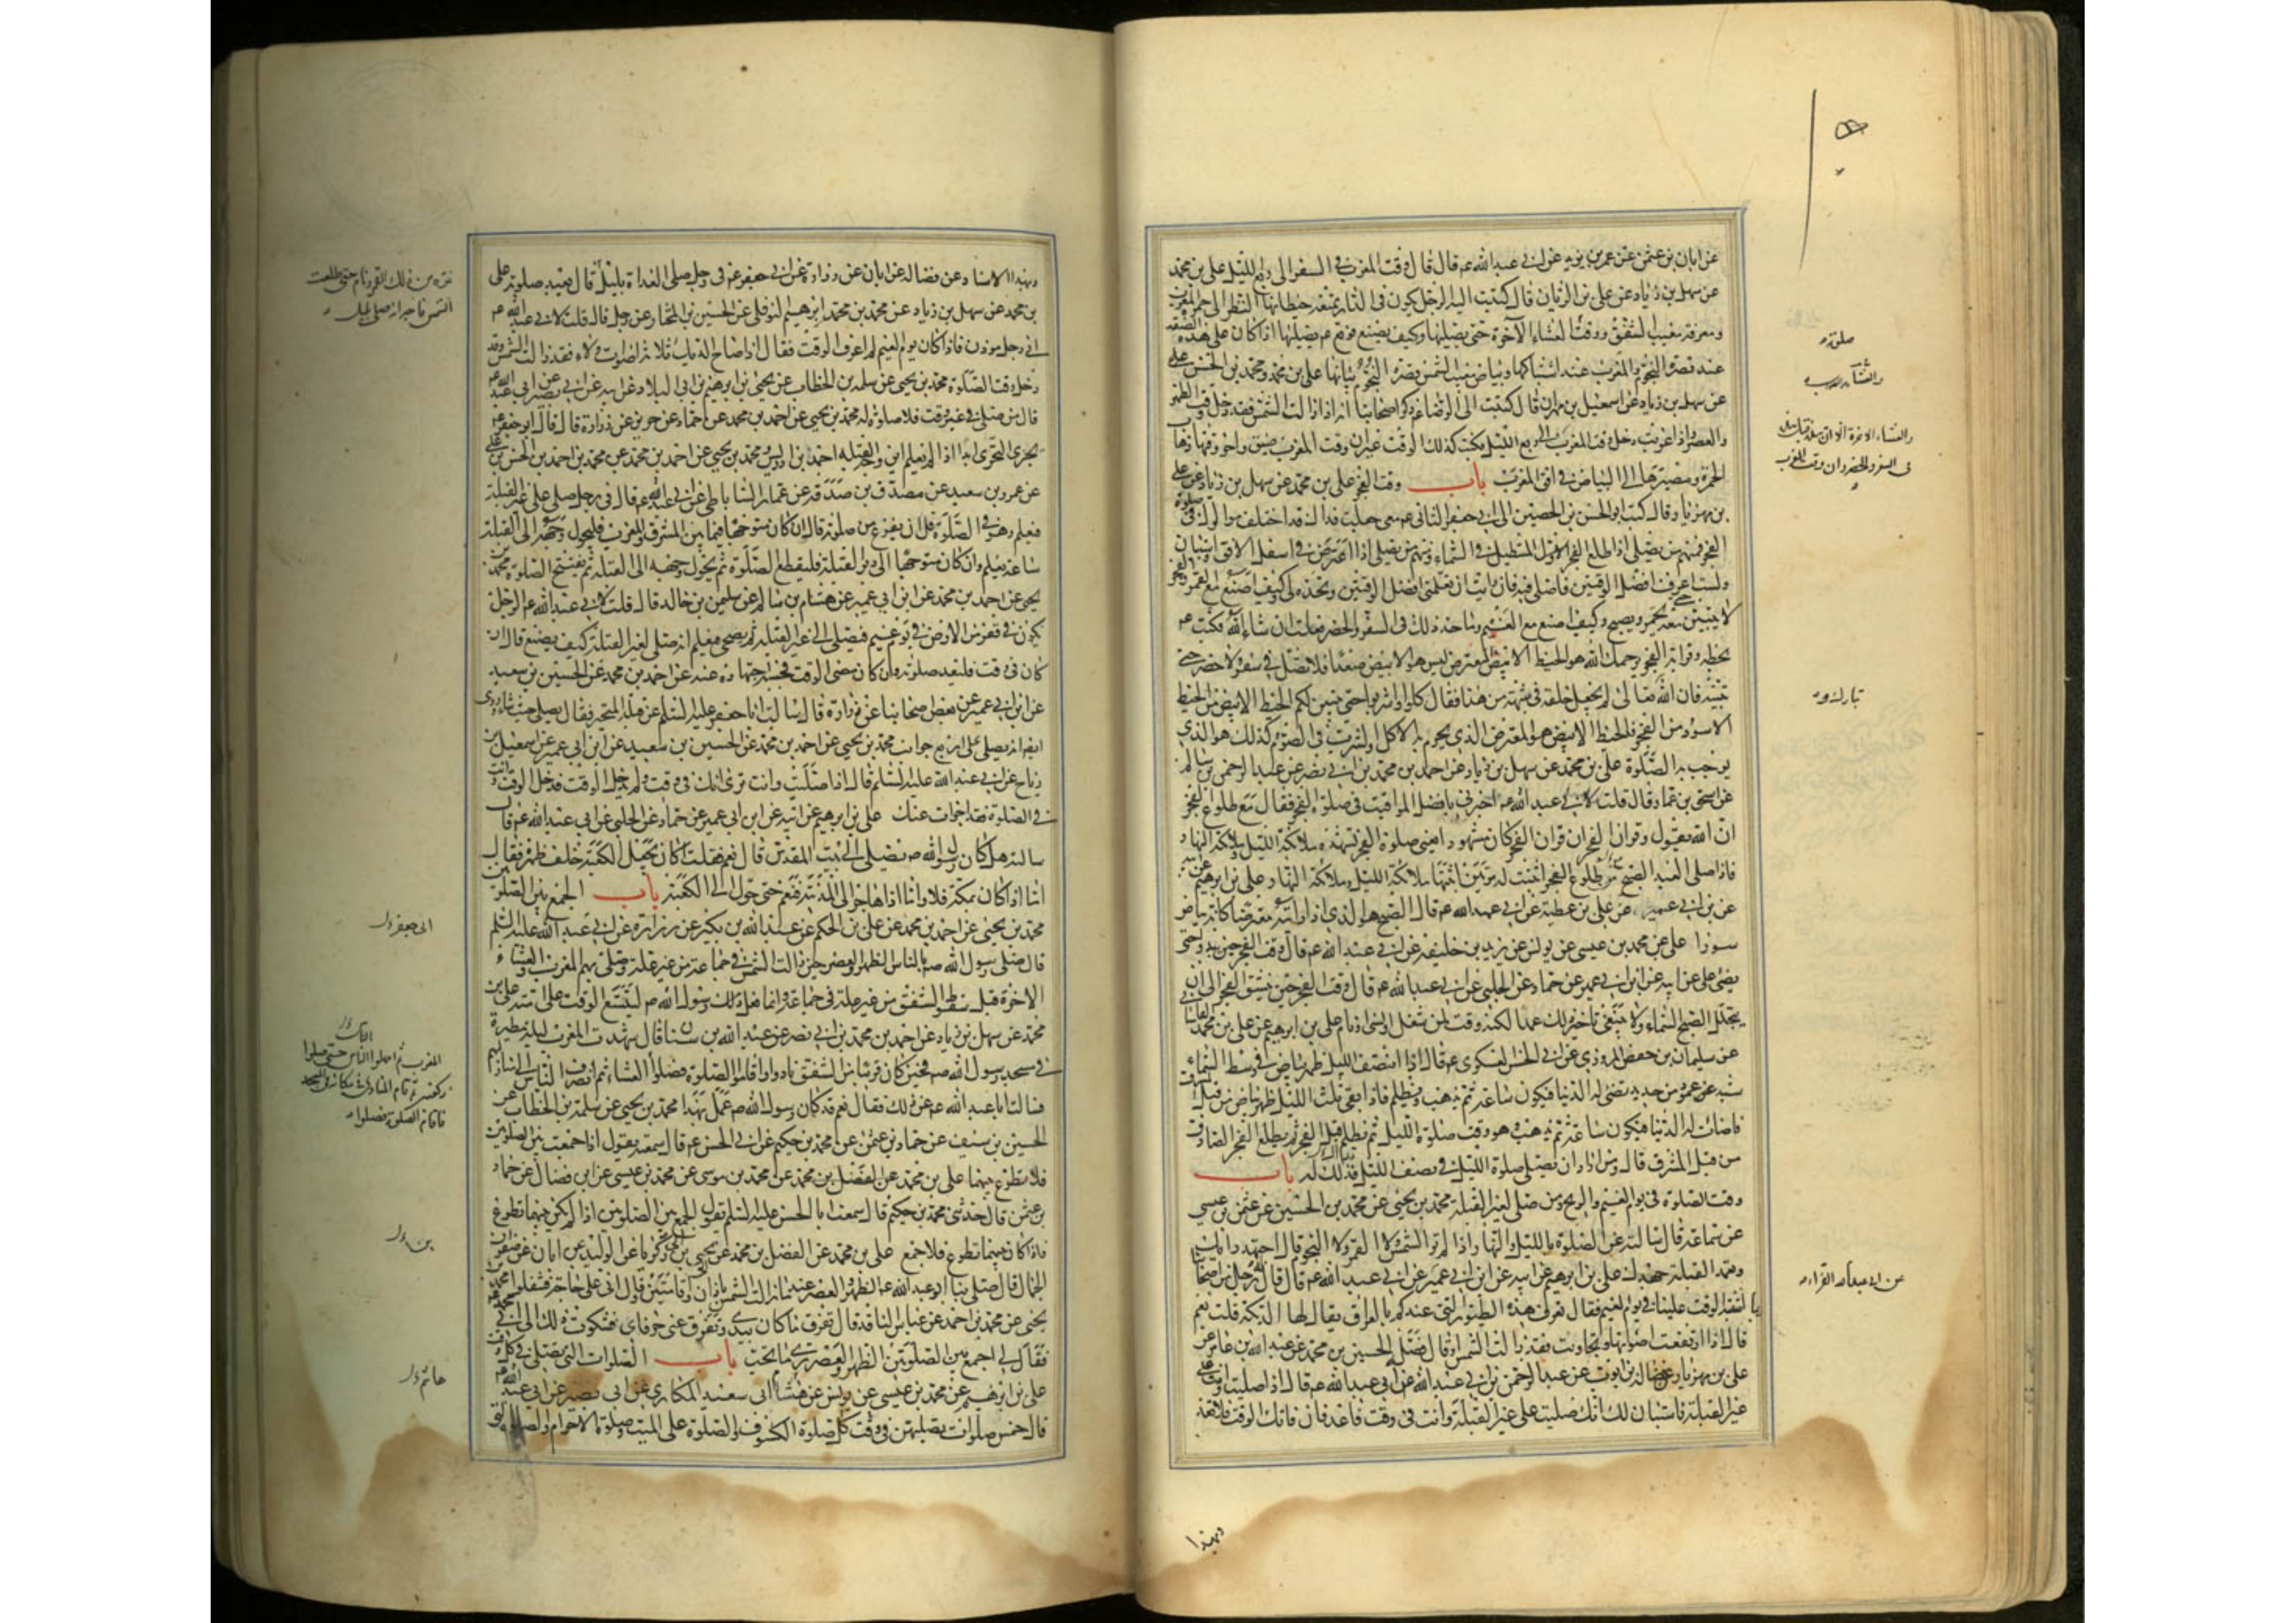 عن ابان بن عثمن عن عمر بن يزيد عن ابي عبد الله ع قال قال وقت المغرب في السفر الى ربع الليل علي بن محمد
عن سهل بن زياد عن علي بن الريان قال كتبت اليه الرجل يكون في الدار يمنعه حيطانها النظر الى حمرة المغرب
ومعرفة مغيب الشفق ووقت العشاء الآخرة متى يصليها وكيف يصنع فوقع ع يصليها اذا كان على هذه الصفة
عند قصرة النجوم والمغرب عند اشتباكها وبياض مغيب الشمس قصرة النجوم بيانها علي بن محمد ومحمد بن الحسن
عن سهل بن زياد عن اسمعيل بن مهران قال كتبت الى الرضا ع ذكر اصحابنا انه اذا زالت الشمس فقد دخل وقت الظهر
والعصر واذا غربت دخل وقت المغرب الى ربع الليل فكتب كذلك الوقت غير ان وقت المغرب ضيق واخر وقتها ذهاب
الحمرة ومصيرها الى البياض في افق المغرب باب وقت الفجر علي بن محمد عن سهل بن زياد عن علي
بن مهزيار قال كتب ابو الحسن بن الحصين الى ابي جعفر الثاني ع معي جعلت فداك قد اختلف موالوك في صلوة
الفجر فمنهم من يصلي اذا طلع الفجر الاول المستطيل في السماء ومنهم من يصلي اذا اعترض في اسفل الافق واستبان
ولست اعرف افضل الوقتين فاصلي فيه فان رايت ان تعلمني افضل الوقتين وتحده لي وكيف اصنع مع القمر والفجر
لا يتبين معه حتى يحمر ويصبح وكيف اصنع مع الغيم وما حد ذلك في السفر والحضر فعلت ان شاء الله فكتب ع
بخطه وقراته الفجر يرحمك الله هو الخيط الابيض المعترض ليس هو الابيض صعدا فلا تصل في سفر ولا حضر حتى
تبينه فان الله تعالى لم يجعل خلقه في شبهة من هذا فقال كلوا واشربوا حتى يتبين لكم الخيط الابيض من الخيط
الاسود من الفجر فالخيط الابيض هو المعترض الذي يحرم به الاكل والشرب في الصوم وكذلك هو الذي
يوجب به الصلوة علي بن محمد عن سهل بن زياد عن احمد بن محمد بن ابي نصر عن عبد الرحمن بن سالم
عن اسحق بن عمار قال قلت لابي عبد الله ع اخبرني بافضل المواقيت في صلوة الفجر فقال مع طلوع الفجر
ان الله يقول وقران الفجر ان قران الفجر كان مشهودا يعني صلوة الفجر تشهده ملائكة الليل وملائكة النهار
فاذا صلى العبد الصبح مع طلوع الفجر اثبتت له مرتين اثبتها ملائكة الليل وملائكة النهار علي بن ابرهيم عن ابيه
عن بن ابي عمير عن علي بن عطية عن ابي عبد الله ع قال الصبح هو الذي اذا رايته معترضا كانه بياض
سورا علي عن محمد بن عيسى عن يونس عن يزيد بن خليفة عن ابي عبد الله ع قال وقت الفجر حين يبدو حتى
يضئ علي عن ابيه عن ابن ابي عمير عن حماد عن الحلبي عن ابي عبد الله ع قال وقت الفجر حين ينشق الفجر الى ان
يتجلل الصبح السماء ولا ينبغي تاخير ذلك عمدا لكنه وقت لمن شغل او نسي او نام علي بن ابرهيم عن علي بن محمد القاساني
عن سليمان بن حفص المروزي عن ابي الحسن العسكري ع قال اذا انتصف الليل ظهر بياض في وسط السماء
شبه عمود من حديد تضئ له الدنيا فيكون ساعة ثم يذهب ويظلم فاذا بقي ثلث الليل ظهر بياض من قبل المشرق
فاضات له الدنيا فيكون ساعة ثم يذهب وهو وقت صلوة الليل ثم يظلم قبل الفجر ثم يطلع الفجر الصادق
من قبل المشرق قال ومن اراد ان يصلي صلوة الليل في نصف الليل فذلك له باب
وقت الصلوة في يوم الغيم والريح ومن صلى لغير القبلة محمد بن يحيى عن محمد بن الحسين عن عثمن بن عيسى
عن سماعة قال سالته عن الصلوة بالليل والنهار اذا لم تر الشمس ولا القمر ولا النجوم قال اجتهد رايك
وتعمد القبلة جهدك علي بن ابرهيم عن ابيه عن ابن ابي عمير عن ابي عبد الله ع قال قال له رجل من اصحابنا
ربما اشتبه الوقت علينا في يوم الغيم فقال تعرف هذه الطيور التي عندكم بالعراق يقال لها الديكة قلت نعم
قال اذا ارتفعت اصواتها وتجاوبت فقد زالت الشمس او قال فصل الحسين بن محمد عن عبد الله بن عامر عن
علي بن مهزيار عن فضالة بن ايوب عن عبد الرحمن بن ابي عبد الله عن ابي عبد الله ع قال اذا صليت وانت على
غير القبلة فاستبان لك انك صليت على غير القبلة وانت في وقت فاعد فان فاتك الوقت فلا تعد
صلوته
والعشاء الاخرة الا ان هذه قبل هذه
في السفر والحضر وان وقت المغرب
تبارك و
عن ابي عبد الله الفراء
وبهذا
وبهذا الاسناد عن فضالة عن ابان عن زرارة عن ابي جعفر ع في رجل صلى الغداة بليل قال يعيد صلوته علي
بن محمد عن سهل بن زياد عن محمد بن محمد ابرهيم النوفلي عن الحسين بن المختار عن رجل قال قلت لابي عبد الله ع
اني رجل موذن فاذا كان يوم الغيم لم اعرف الوقت فقال اذا صاح الديك ثلاثة اصوات ولاء فقد زالت الشمس وقد
دخل وقت الصلوة محمد بن يحيى عن سلمة بن الخطاب عن يحيى بن ابرهيم بن ابي البلاد عن ابيه عن ابي بصير عن ابي عبد الله ع
قال من صلى في غير وقت فلا صلوة له محمد بن يحيى عن احمد بن محمد عن حماد عن حريز عن زرارة قال قال ابو جعفر ع
يجزي التحري ابدا اذا لم يعلم اين وجه القبلة احمد بن ادريس ومحمد بن يحيى عن احمد بن محمد عن محمد بن احمد بن الحسن بن علي
عن عمرو بن سعيد عن مصدق بن صدقة عن عمار الساباطي عن ابي عبد الله ع قال في رجل صلى على غير القبلة
فيعلم وهو في الصلوة قبل ان يفرغ من صلوته قال ان كان متوجها فيما بين المشرق والمغرب فليحول وجهه الى القبلة
ساعة يعلم وان كان متوجها الى دبر القبلة فليقطع الصلوة ثم يحول وجهه الى القبلة ثم يفتتح الصلوة محمد بن
يحيى عن احمد بن محمد عن ابن ابي عمير عن هشام بن سالم عن سليمن بن خالد قال قلت لابي عبد الله ع الرجل
يكون في قفر من الارض في يوم غيم فيصلي الى غير القبلة ثم يصحي فيعلم انه صلى لغير القبلة كيف يصنع قال ان
كان في وقت فليعد صلوته وان كان مضى الوقت فحسبه اجتهاده عنه عن احمد بن محمد عن الحسين بن سعيد
عن ابن ابي عمير عن بعض اصحابنا عن زرارة قال سالت ابا جعفر عليه السلم عن قبلة المتحير فقال يصلي حيث شاء وروى
ايضا انه يصلي على اربع جوانب محمد بن يحيى عن احمد بن محمد عن الحسين بن سعيد عن ابن ابي عمير عن اسمعيل بن
رباح عن ابي عبد الله عليه السلم قال اذا صليت وانت ترى انك في وقت ولم يدخل الوقت فدخل الوقت وانت
في الصلوة فقد اجزات عنك علي بن ابرهيم عن ابيه عن ابن ابي عمير عن حماد عن الحلبي عن ابي عبد الله ع قال
سالته هل كان رسول الله ص يصلي الى بيت المقدس قال نعم فقلت اكان يجعل الكعبة خلف ظهره فقال
اما اذا كان بمكة فلا واما اذا هاجر الى المدينة فنعم حتى حول الى الكعبة باب الجمع بين الصلوتين
محمد بن يحيى عن احمد بن محمد عن علي بن الحكم عن عبد الله بن بكير عن زرارة عن ابي عبد الله عليه السلم
قال صلى رسول الله ص بالناس الظهر والعصر حين زالت الشمس في جماعة من غير علة وصلى بهم المغرب والعشاء
الاخرة قبل سقوط الشفق من غير علة في جماعة وانما فعل ذلك رسول الله ص ليتسع الوقت على امته علي بن
محمد عن سهل بن زياد عن احمد بن محمد بن ابي نصر عن عبد الله بن سنان قال شهدت المغرب ليلة مطيرة
في مسجد رسول الله ص فحين كان قريبا من الشفق نادوا واقاموا الصلوة فصلوا العشاء ثم انصرف الناس الى منازلهم
فسالت ابا عبد الله ع عن ذلك فقال نعم قد كان رسول الله ص عمل بهذا محمد بن يحيى عن سلمة بن الخطاب عن
الحسين بن سيف عن حماد بن عثمن عن محمد بن حكيم عن ابي الحسن ع قال سمعته يقول اذا جمعت بين الصلوتين
فلا تطوع بينهما علي بن محمد عن الفضل بن محمد عن محمد بن موسى عن محمد بن عيسى عن ابن فضال عن حماد
بن عثمن قال حدثني محمد بن حكيم قال سمعت ابا الحسن عليه السلم يقول الجمع بين الصلوتين اذا لم يكن بينهما تطوع
فاذا كان بينهما تطوع فلا جمع علي بن محمد عن الفضل بن محمد عن يحيى بن ابي زكريا عن الوليد عن ابان عن صفوان
الجمال قال صلى بنا ابو عبد الله ع الظهر والعصر عند ما زالت الشمس باذان واقامتين وقال اني على حاجة فتنفلوا محمد بن
يحيى عن محمد بن احمد عن عباس الناقد قال تفرق ما كان بيدي وتفرق عني حرفاي فشكوت ذلك الى ابي محمد ع
فقال لي اجمع بين الصلوتين الظهر والعصر ترى ما تحب باب الصلوات التي تصلى في كل وقت
علي بن ابرهيم عن محمد بن عيسى عن يونس عن هشام ابي سعيد المكاري عن ابي بصير عن ابي عبد الله ع
قال خمس صلوات تصليهن في كل وقت صلوة الكسوف والصلوة على الميت وصلوة الاحرام والصلوة التي
غره من ذلك القمر ونام حتى طلعت
الشمس فاخبر انه صلى بليل
ابي جعفر
المغرب ثم امهلوا الناس حتى صلوا
ركعتين ثم قام المنادي في مكانه في المسجد
فاقام الصلوة فصلوا
بن
هاشم